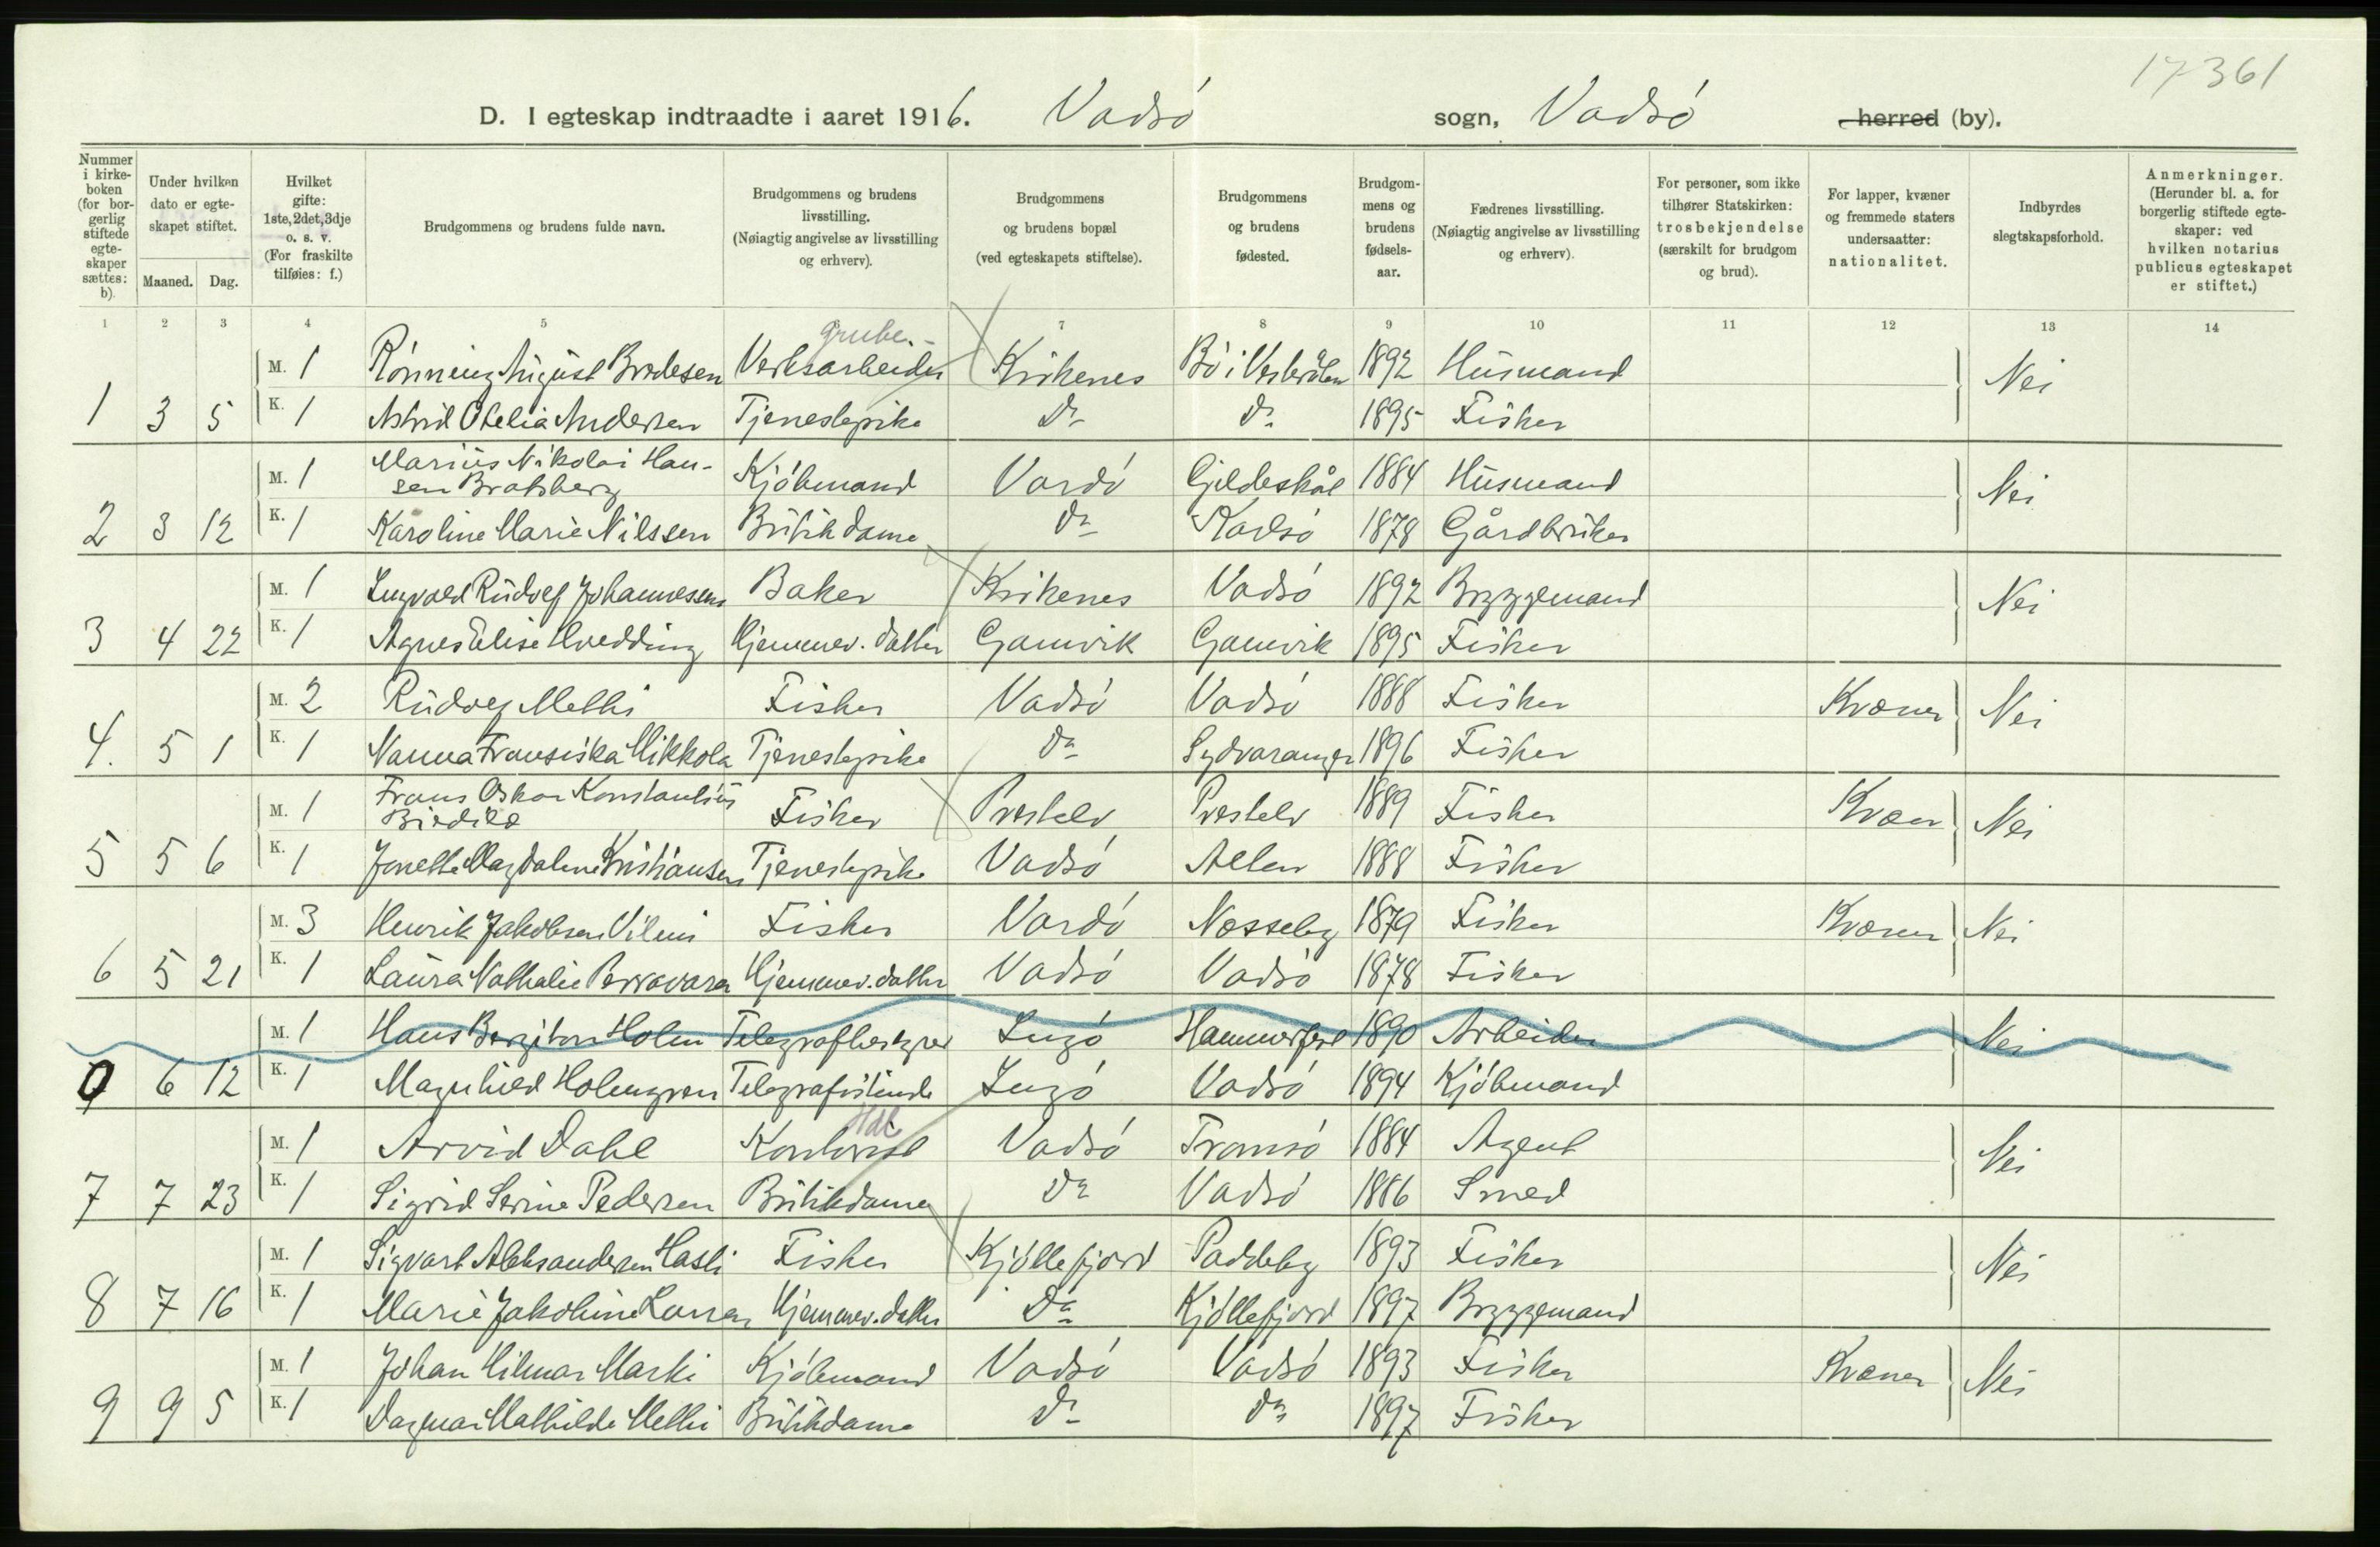 17361
D. I egteskap indtraadte i aaret 1916. Vadsö sogn, Vadsö herred (by).
Nummer i kirke-boken (for bor-gerlig stiftede egte-skaper sættes: b).
Under hvilken dato er egte-skapet stiftet.
Maaned. Dag.
Hvilket gifte: 1ste, 2det, 3dje o. s. v. (For fraskilte tilføies: f.)
Brudgommens og brudens fulde navn.
Brudgommens og brudens livsstilling. (Nøiagtig angivelse av livsstilling og erhverv).
Brudgommens og brudens bopæl (ved egteskapets stiftelse).
Brudgommens og brudens fødested.
Brudgom-mens og brudens fødsels-aar.
Fædrenes livsstilling. (Nøiagtig angivelse av livsstilling og erhverv).
For personer, som ikke tilhører Statskirken: trosbekjendelse (særskilt for brudgom og brud).
For lapper, kvæner og fremmede staters undersaatter: nationalitet.
Indbyrdes slegtskapsforhold.
Anmerkninger. (Herunder bl. a. for borgerlig stiftede egte-skaper: ved hvilken notarius publicus egteskapet er stiftet.)
1 2 3 4 5 7 8 9 10 11 12 13 14
grube-
M. 1 Rönning August Brodesen Verksarbeider Kirkenes Bö i Vesterålen 1892 Husmand Nei
1 3 5 K. 1 Astrid Otelia Andersen Tjenestepike Do Do 1895 Fisker
M. 1 Marius Nikolai Han-
sen Bratsberg Kjöbmand Vardö Gildeskål 1884 Husmand Nei
2 3 12 K. 1 Karoline Marie Nilssen Butikdame Do 1878 Gårdbruker
M. 1 Ingvald Rudolf Johannessen Baker Kirkenes Vadsö 1892 Bryggemand Nei
3 4 22 K. 1 Agnes Elise Hvedding Hjemmev. datter Gamvik Gamvik 1895 Fisker
M. 2 Rudolf Methi Fisker Vadsö Vadsö 1888 Fisker Kvæner Nei
4. 5 1 K. 1 Nanna Fransiska Mikkola Tjenestepike Do Sydvaranger 1896 Fisker
Frans Oskar Konstantius
M. 1 Fisker Prestelv Prestelv 1889 Fisker Kvæn Nei
5 5 6 K. 1 Jenette Magdalene Kristiansen Tjenestepike Vadsö Alten 1888 Fisker
M. 3 Henrik Jakobsen Fisker Vardö Nesseby 1879 Fisker Kvæner Nei
6 5 21 K. 1 Laura Nathalie Perravara Hjemmev. datter Vadsö Vadsö 1878 Fisker
M. 1 Hans Bergiton Holm Telegrafbestyrer Ingö Hammerfest 1890 Arbeider Nei
0 6 12 K. 1 Magnhild Holmgren Telegrafistinde Ingö Vadsö 1894 Kjöbmand
Hdl
M. 1 Arvid Dahl Kontorist Vadsö Tromsö 1884 Agent Nei
7 7 23 K. 1 Sigrid Serine Pedersen Butikdame Do Vadsö 1886 Smed
M. 1 Sigvart Aleksandersen Hasti Fisker Kjöllefjord Paddeby 1893 Fisker Nei
8 7 16 K. 1 Marie Jakobine Larsen Hjemmev. datter Do Kjöllefjord 1897 Bryggemand
M. 1 Johan Hilmar Marki Kjöbmand Vadsö Vadsö 1893 Fisker Kvæner Nei
9 9 5 K. 1 Dagmar Mathilde Methi Butikdame Do Do 1897 Fisker